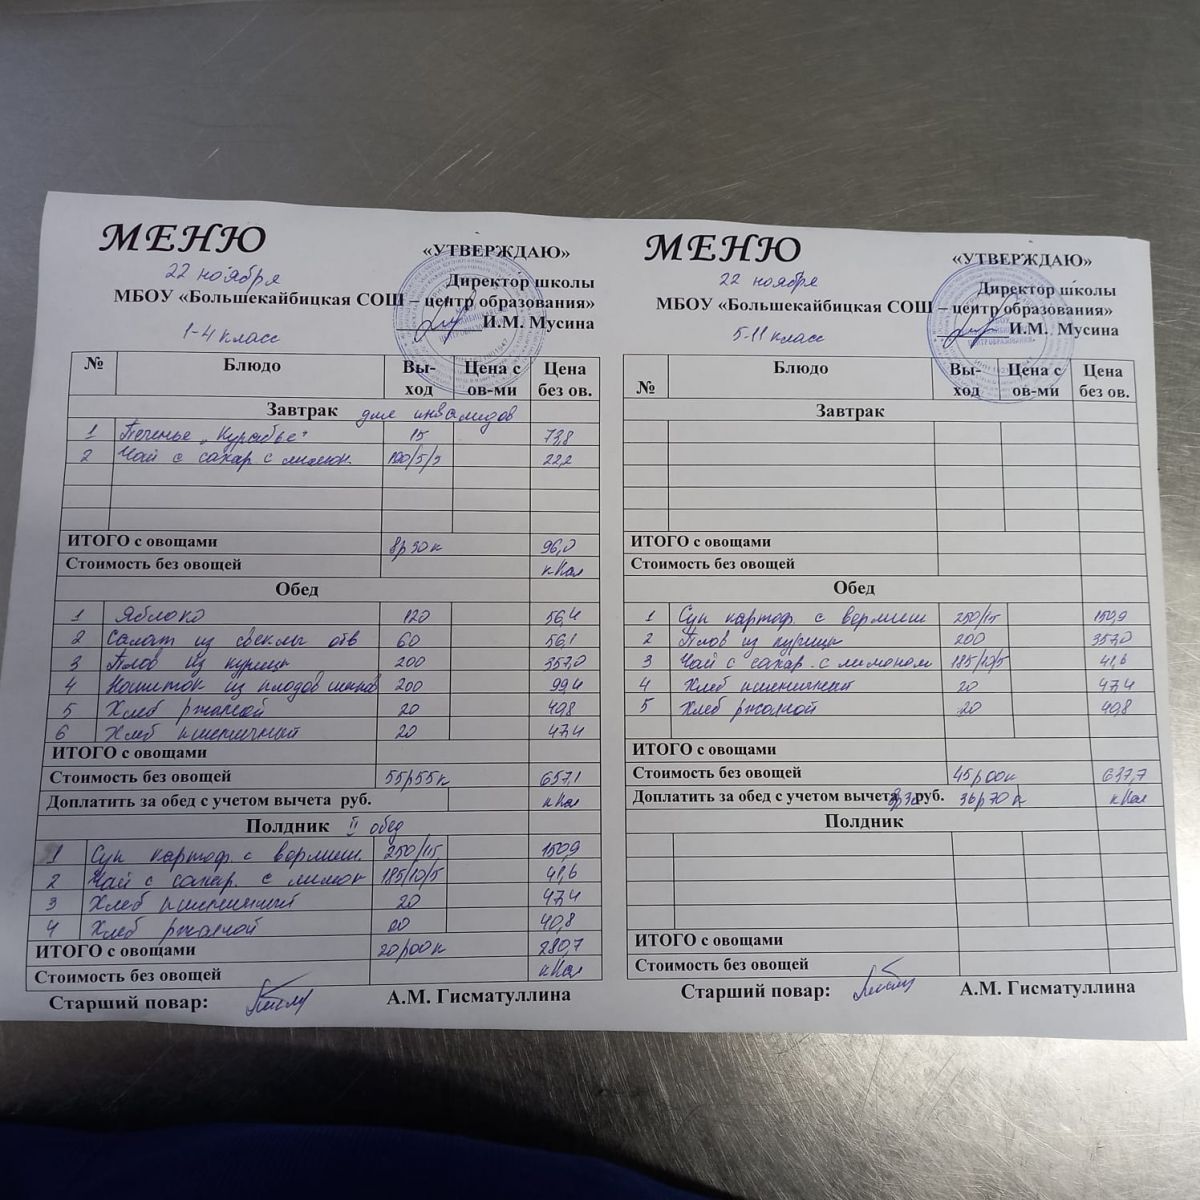 МЕНЮ
22 ноября
«УТВЕРЖДАЮ»
Директор школы
МБОУ «Большекайбицкая СОШ – центр образования»
И.М. Мусина
1-4 класс
№ Блюдо Вы-ход Цена с ов-ми Цена без ов.
Завтрак для инвалидов
1 Печенье „Курабье" 15 73,8
2 Чай с сахар с лимон. 100/5/3 22,2
ИТОГО с овощами 8р30к 96,0
Стоимость без овощей кКал
Обед
1 Яблоко 120 56,4
2 Салат из свеклы отв 60 56,1
3 Плов из курицы 200 357,0
4 Напиток из плодов шипов 200 99,4
5 Хлеб ржаной 20 40,8
6 Хлеб пшеничный 20 47,4
ИТОГО с овощами
Стоимость без овощей 55р55к 657,1
Доплатить за обед с учетом вычета руб. кКал
Полдник II обед
1 Суп картоф. с вермиш. 250/15 150,9
2 Чай с сахар. с лимон 185/10/5 41,6
3 Хлеб пшеничный 20 47,4
4 Хлеб ржаной 20 40,8
ИТОГО с овощами 20р00к 280,7
Стоимость без овощей кКал
Старший повар: А.М. Гисматуллина
МЕНЮ
22 ноября
«УТВЕРЖДАЮ»
Директор школы
МБОУ «Большекайбицкая СОШ – центр образования»
И.М. Мусина
5-11 класс
№ Блюдо Вы-ход Цена с ов-ми Цена без ов.
Завтрак
ИТОГО с овощами
Стоимость без овощей
Обед
1 Суп картоф. с вермиш 250/15 150,9
2 Плов из курицы 200 357,0
3 Чай с сахар. с лимоном 185/10/5 41,6
4 Хлеб пшеничный 20 47,4
5 Хлеб ржаной 20 40,8
ИТОГО с овощами
Стоимость без овощей 45р00к 637,7
Доплатить за обед с учетом вычета руб. 36р70к кКал
Полдник
ИТОГО с овощами
Стоимость без овощей
Старший повар: А.М. Гисматуллина